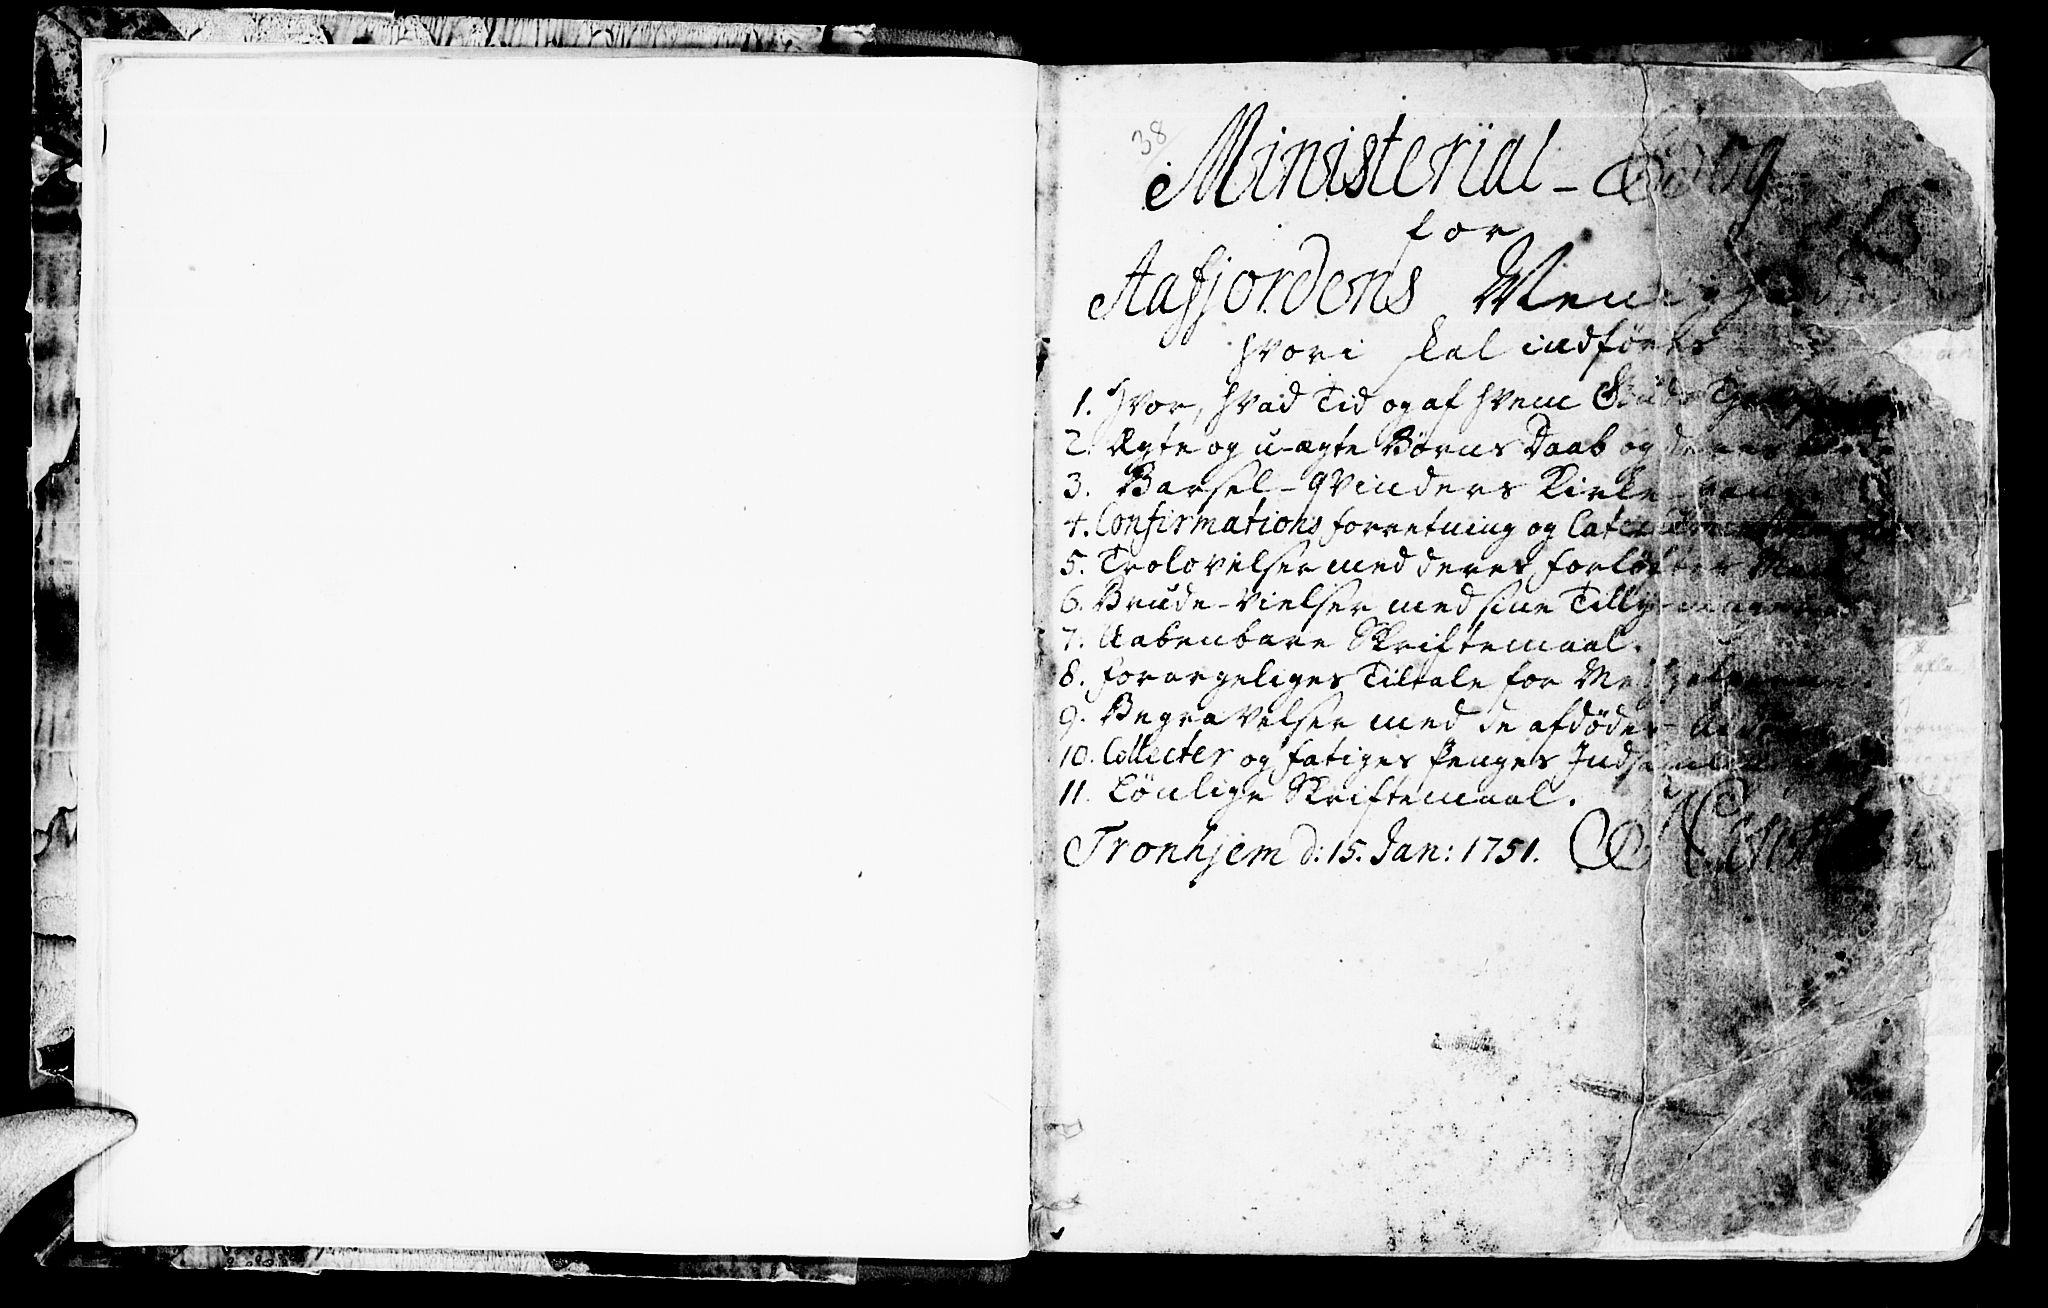 38
Ministerial - Bog
for
Aafjordens Menighed
hvori skal indføres
1. Hvor, hvad Tid og af hvem Guds Tieneste
2. Ægte og u-ægte Børns Daab og deres
3. Barsel-Qvinders Kirkegang
4. Confirmations forretning og
5. Trolovelser med deres forløftes Mænd
6. Brude-Vielser med sine
7. Aabenbare Skriftemaal.
8. Forargeliges Tiltale for Medhielperne.
9. Begravelser med de afdødes
10. Collecter og fatiges Penges
11. Lönlige Skriftemaal.
Tronhjem d: 15. Jan: 1751.